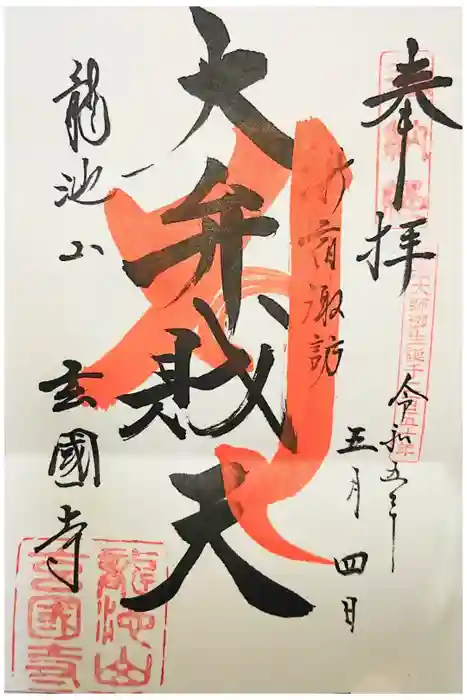 奉拝
新宿諏訪
令和五年
五月四日
大弁財天
龍池山
玄國寺
大師御生誕千二百五十年
龍池山
玄國寺